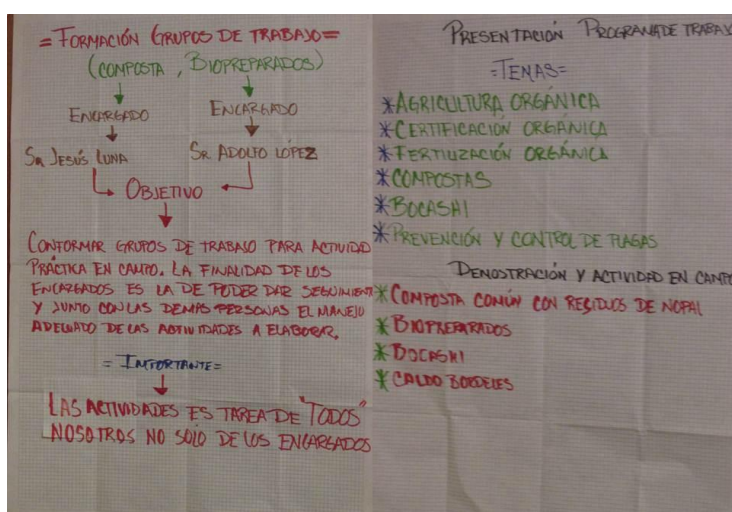 = FORMACIÓN GRUPOS DE TRABAJO =
(COMPOSTA , BIOPREPARADOS)
ENCARGADO ENCARGADO
SR JESÚS LUNA SR ADOLFO LÓPEZ
OBJETIVO
CONFORMAR GRUPOS DE TRABAJO PARA ACTIVIDAD
PRÁCTICA EN CAMPO. LA FINALIDAD DE LOS
ENCARGADOS ES LA DE PODER DAR SEGUIMIENT
Y JUNTO CON LAS DEMÁS PERSONAS EL MANEJO
ADECUADO DE LAS ACTIVIDADES A ELABORAR.
= IMPORTANTE =
LAS ACTIVIDADES ES TAREA DE "TODOS"
NOSOTROS NO SOLO DE LOS ENCARGADOS
PRESENTACIÓN PROGRAMA DE TRABAJ
=TEMAS=
* AGRICULTURA ORGÁNICA
* CERTIFICACIÓN ORGÁNICA
* FERTILIZACIÓN ORGÁNICA
* COMPOSTAS
* BOCASHI
* PREVENCIÓN Y CONTROL DE PLAGAS
DEMOSTRACIÓN Y ACTIVIDAD EN CAMPO
* COMPOSTA COMÚN CON RESIDUOS DE NOPAL
* BIOPREPARADOS
* BOCASHI
* CALDO BORDELES